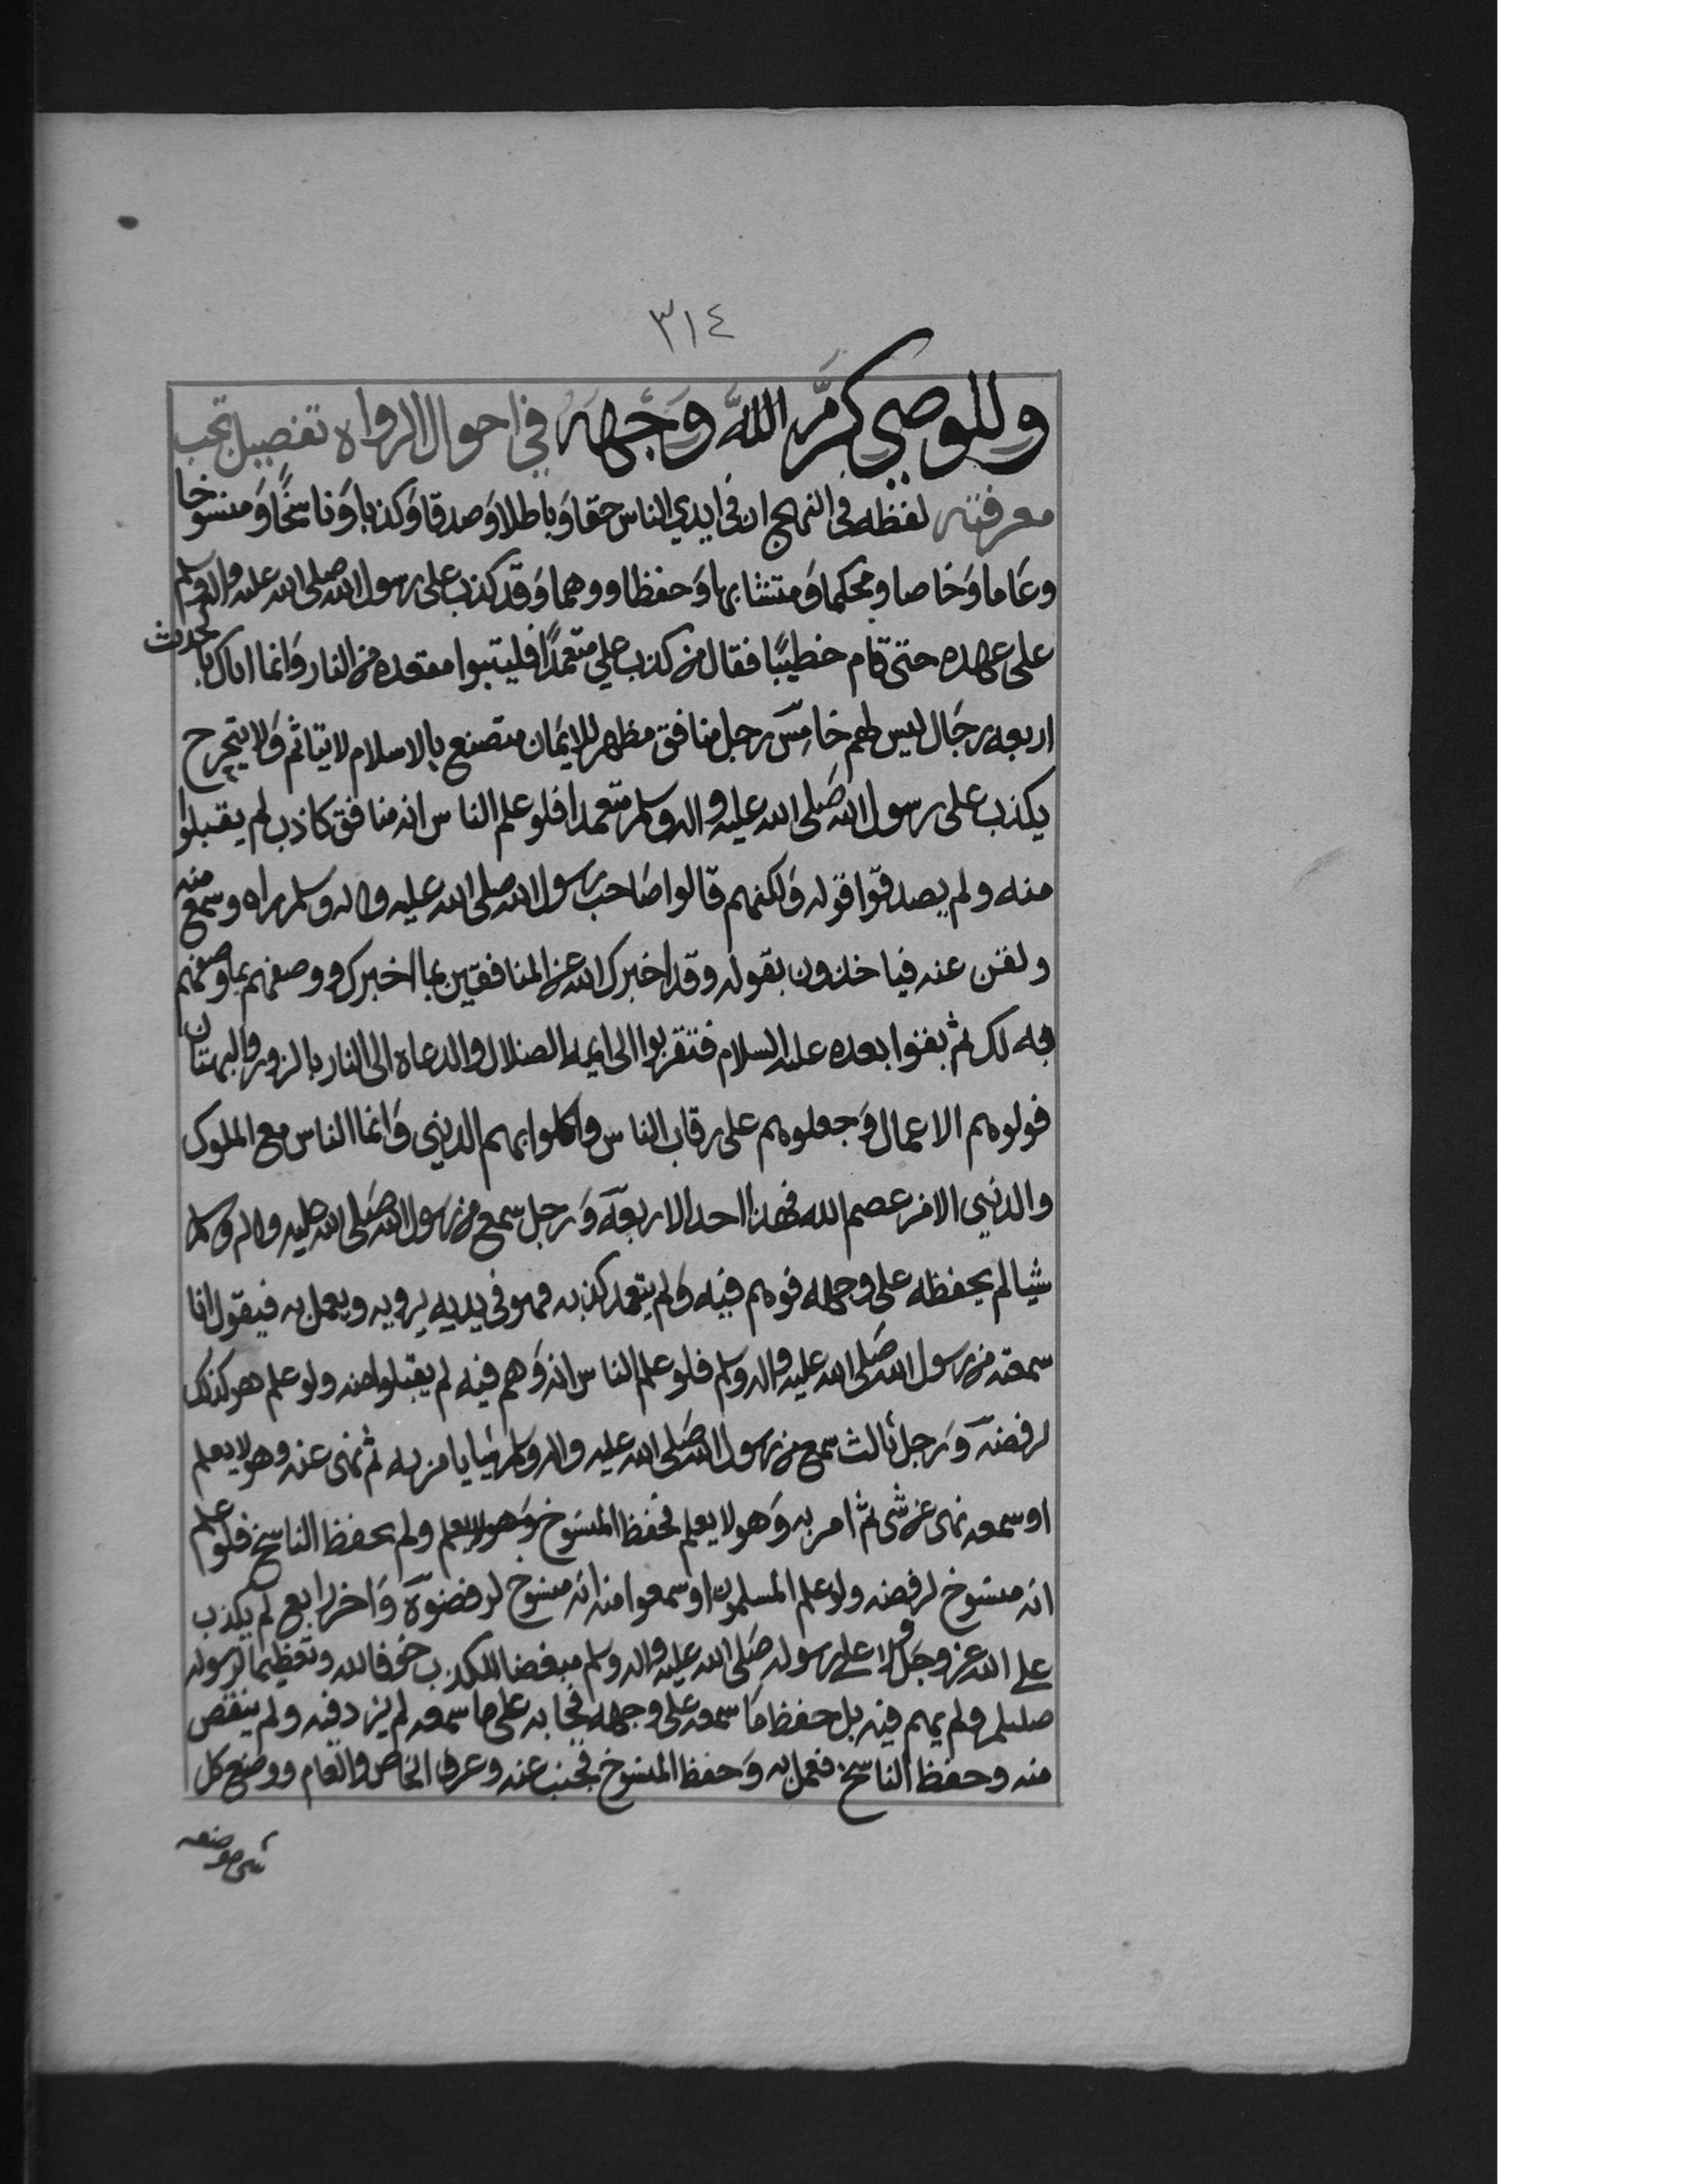 ٣١٤
وللوصي كرَّم اللهُ وَجْهَه في احوال الرواه تفصيل تجب
معرفته لفظه في النهج ان في ايدي الناس حقا وَباطلا وَصدقا وَكذبا وَناسخًا وَمنسوخا
وعَاما وَخاصا ومحكما وَمتشابها وَحفظا ووهما وَقد كذب على رسول الله صلى الله عليه واله وسلم
على عهده حتى قام خطيبًا فقال من كذب علي متعمدًا فليتبوا مقعده من النار وَانما اتاك بالحديث
اربعه رجَال ليس لهم خامس رجل منافق مظهر للايمَان متصنع بالاسلام لا يتاثم وَلا يتحرج
يكذب على رسول الله صَلى الله عليه واله وسلم متعمدا فلو علم الناس انه منافق كاذب لم يقبلوا
منه ولم يصدقوا قوله وَلكنهم قالوا صَاحب رسول الله صلى الله عليه واله وسلم راه وسمع منه
ولقن عنه فياخذون بقوله وقد اخبرك الله عن المنافقين بما اخبرك ووصفهم بما وصفهم
به لك ثم بقوا بعده عليه السلام فتقربوا الى ايمه الضلال والدعاه الى النار بالزور والبهتان
فولوهم الاعمال وَجعلوهم على رقاب الناس واكلوا بهم الدنيى وَانما الناس مع الملوك
والدنيى الا من عصم الله فهذا احد الاربعه وَرجل سمع من رسول الله صَلى الله عليه واله وسلم
شيا لم يحفظه على وجهه فوهم فيه وَلم يتعمد كذبه فهو في يديه يرويه ويعمل به فيقول انا
سمعته من رسول الله صَلى الله عليه واله وسلم فلو علم الناس انه وَهم فيه لم يقبلوا منه ولو علم هو كذلك
لرفضه وَرجل ثالث سمع من رسول الله صَلى الله عليه واله وسلم شيا يامر به ثم نهى عنه وهو لا يعلم
او سمعه نهى عن شى ثم امر به وَهو لا يعلم فحفظ المنسوخ وَهو لا يعلم ولم يحفظ الناسخ فلو علم
انه منسوخ لرفضه ولو علم المسلمون او سمعوا منه انه منسوخ لرفضوه وَاخر رابع لم يكذب
على الله عز وجل ولا على رسوله صَلى الله عليه واله وسلم مبغضا للكذب خوفا لله وتعظيما لرسوله
صلعم ولم يهم فيه بل حفظ مَا سمعه على وجهه فجا به على ما سمعه لم يزد فيه ولم ينقص
منه وحفظ الناسخ فعمل به وَحفظ المنسوخ فجنب عنه وعرف الخاص والعام ووضع كل
شى موضعه